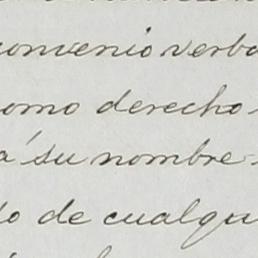 convenio verba
como derecho
á su nombre
do de cualqui